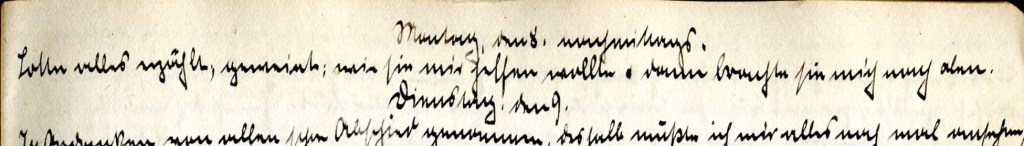 Montag, den 8. nachmittags.
Lotte alles erzählt, geweint; wie sie mir helfen wollte. dann brachte sie mich nach oben.
Dienstag. den 9.
In Gedanken von allem schon Abschied genommen, deshalb mußte ich mir alles noch mal ansehen,